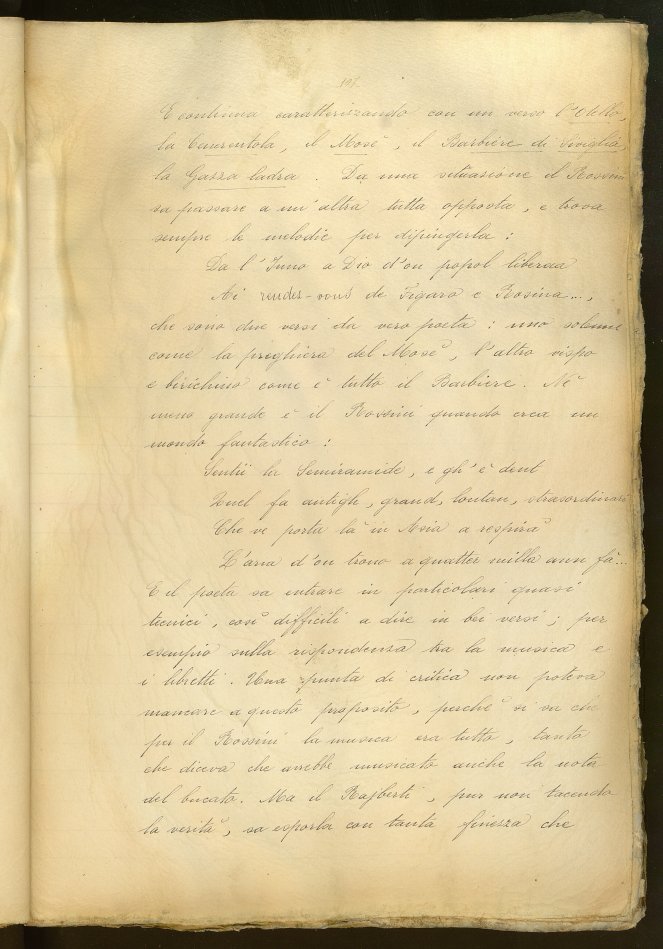 E continua caratterizzando con un verso l'Otello,
la Cenerentola, il Mosè, il Barbiere di Siviglia,
la Gazza ladra. Da una situazione il Rossini
sa passare a un'altra tutta opposta, e trova
sempre le melodie per dipingerla:
Da l'Inno a Dio d'on popol liberaa
Ai rendez-vous de Figaro e Rosina...,
che sono due versi da vero poeta: uno solenne
come la preghiera del Mosè, l'altro vispo
e birichino come è tutto il Barbiere. Nè
meno grande è il Rossini quando crea un
mondo fantastico:
Sentii la Semiramide, e gh'è dent
Quel fa antigh, grand, lontan, straordinari
Che ve porta là in Asia a respirà
L'aria d'on trono a quatter milla ann fà...
E il poeta sa entrare in particolari quasi
tecnici, così difficili a dire in bei versi; per
esempio sulla rispondenza tra la musica e
i libretti. Una punta di critica non poteva
mancare a questo proposito, perchè si sa che
per il Rossini la musica era tutto, tanto
che diceva che avrebbe musicato anche la nota
del bucato. Ma il Rajberti, pur non tacendo
la verità, sa esporla con tanta finezza che